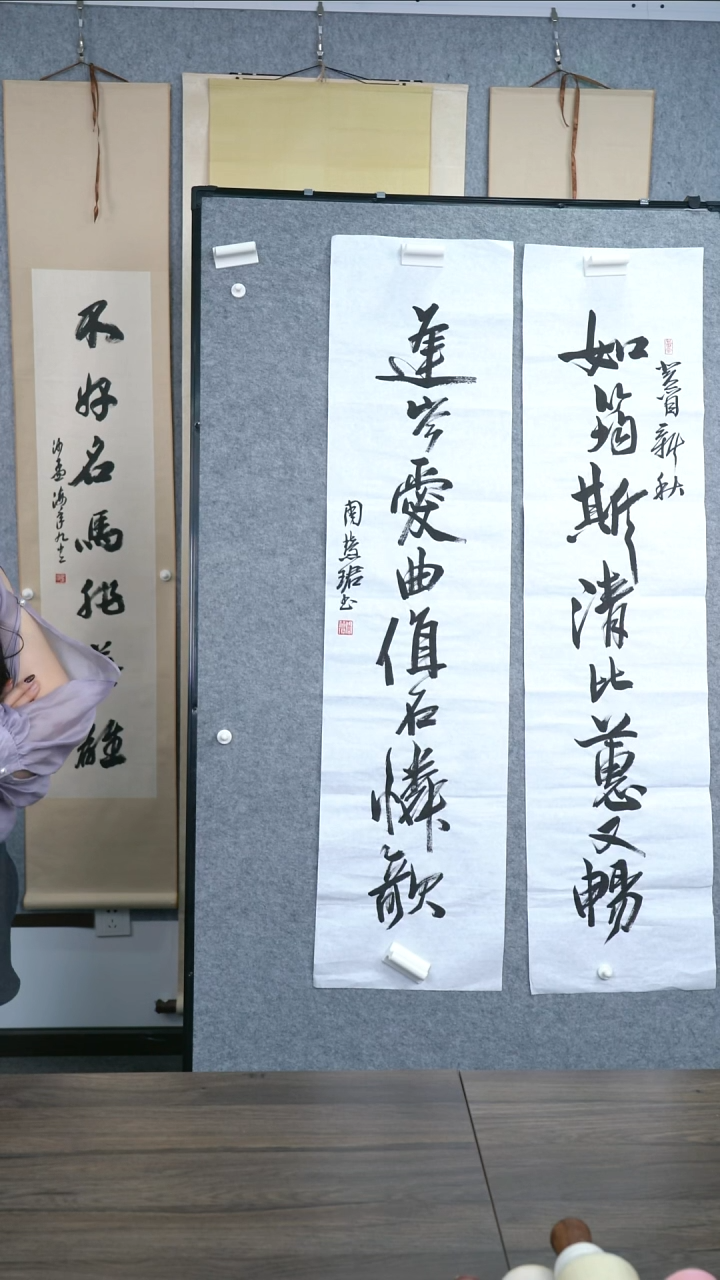 如筠斯清比蕙又暢
新秋
逢岑愛曲值石憐欹
周慧珺書
不好名馬非雄
沙孟海年九十二